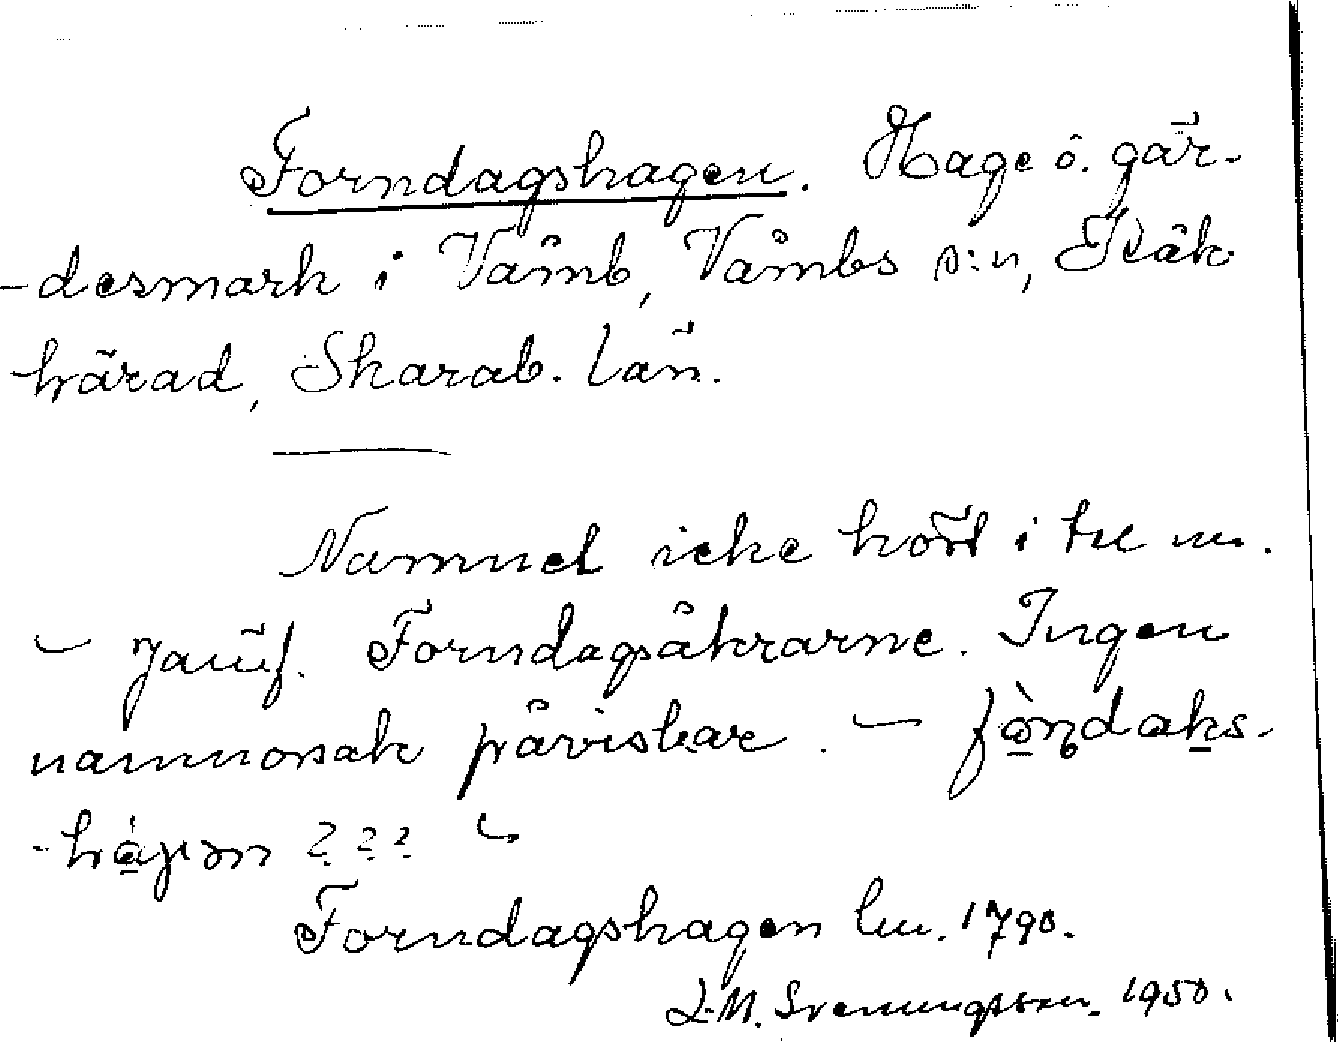 Forndagshagen. Hage ö. gär-
-desmark i Våmb, Våmbs s:n, Kåk
härad, Skarab. län.
Namnet icke hört i
– Jämf. Forndagsåkrarne. Ingen
namnorsak påvisbar. –
??? –
Forndagshagen lm. 1790.
L.M. Svenungsson. 1950.